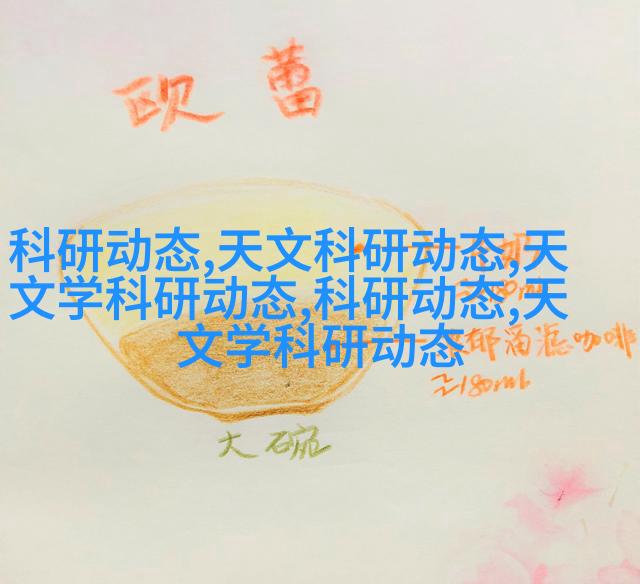 欧蕾
科研动态,天文科研动态,天
文学科研动态,科研动态,天
文学科研动态
郁滴滤咖啡
≈180ml
大碗